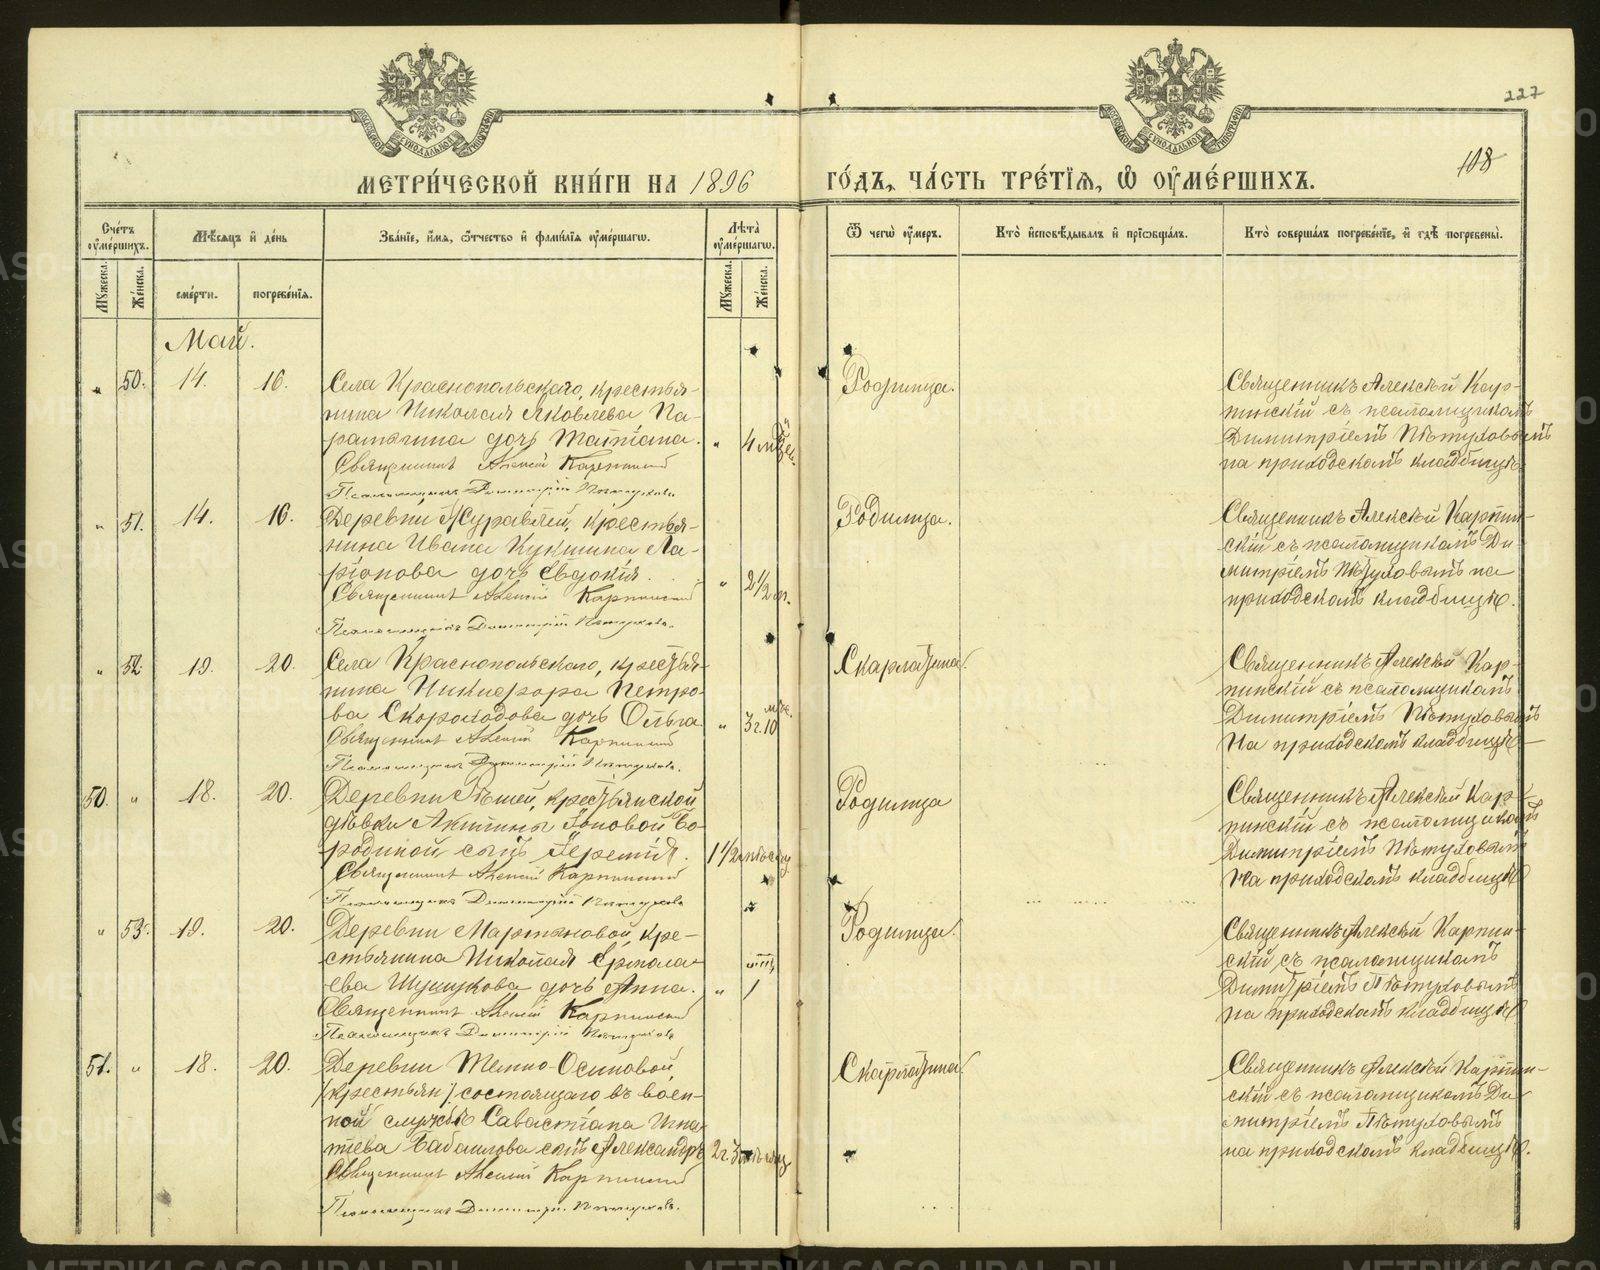 227
108
МЕТРИ́ЧЕСКОЙ КНИ́ГИ НА 1896
ГО́ДЪ, ЧА́СТЬ ТРЕ́ТІѦ, Ѡ҆ ОУ҆МЕ́РШИХЪ.
Сче́тъ оу҆ме́ршихъ.
Мѣ́сяцъ и҆ де́нь
Зва́нїе, и҆́мя, ѻ҆́тчество и҆ фами́лїя оу҆ме́ршагѡ.
Лѣта̀ оу҆ме́ршагѡ.
Ѿ чегѡ̀ оу҆́меръ.
Кто̀ и҆сповѣ́дывалъ и҆ прїѡбща́лъ.
Кто̀ соверша́лъ погребе́нїе, и҆ гдѣ̀ погребены̀.
Му́жеска.
Же́нска.
сме́рти.
погребе́нїя.
Му́жеска.
Же́нска.
Май.
" 50. 14. 16.
Села Краснопольскаго, крестья-
нина Николая Яковлева Па-
рамыгина дочь Татіана. " 4 мѣс.
Священникъ Алексій Карпинскій
Псаломщикъ Димитрій Пѣтуховъ
Родимца.
Священникъ Алексѣй Кар-
пинскій съ псаломщикомъ
Димитріемъ Пѣтуховымъ
на приходскомъ кладбищѣ.
" 51. 14. 16.
Деревни Журавлей, крестья-
нина Ивана Кукшина Ла-
ріонова дочь Евдокія. " 2 1/2 г.
Священникъ Алексій Карпинскій
Псаломщикъ Димитрій Пѣтуховъ.
Родимца.
Священникъ Алексѣй Карпин-
скій съ псаломщикомъ Ди-
митріемъ Пѣтуховымъ на
приходскомъ кладбищѣ.
" 52. 19. 20.
Села Краснопольскаго, крестья-
нина Никифора Петро-
ва Скороходова дочь Ольга. " 3 г. 10 мѣс.
Священникъ Алексій Карпинскій
Псаломщикъ Димитрій Пѣтуховъ.
Скарлатина.
Священникъ Алексѣй Кар-
пинскій съ псаломщикомъ
Димитріемъ Пѣтуховымъ
на приходскомъ кладбищѣ
50. " 18. 20.
Деревни крестьянской
дѣвки Акилины Іоновой Бо-
родиной сынъ Іеремія. 1 1/2 мѣсяц
Священникъ Алексій Карпинскій
Псаломщикъ Димитрій Пѣтуховъ
Родимца
Священникъ Алексѣй Кар-
пинскій съ псаломщикомъ
Димитріемъ Пѣтуховымъ
на приходскомъ кладбищѣ
" 53. 19. 20.
Деревни Мартяновой, кре-
стьянина Николая Ермола-
ева Шушукова дочь Анна. " 1
Священникъ Алексій Карпинскій
Псаломщикъ Димитрій Пѣтуховъ
Родимца.
Священникъ Алексѣй Карпин-
скій съ псаломщикомъ
Димитріемъ Пѣтуховымъ
на приходскомъ кладбищѣ
51. " 18. 20.
Деревни Темно-Осиновой,
/крестьян/ состоящаго въ воен-
ной службѣ Савастіана Игна-
тіева Бабаилова сынъ Александръ 2 г. 3 мѣсяц
Священникъ Алексій Карпинскій
Псаломщикъ Димитрій Пѣтуховъ.
Скарлатина.
Священникъ Алексѣй Карпин-
скій съ псаломщикомъ Ди-
митріемъ Пѣтуховымъ
на приходскомъ кладбищѣ.